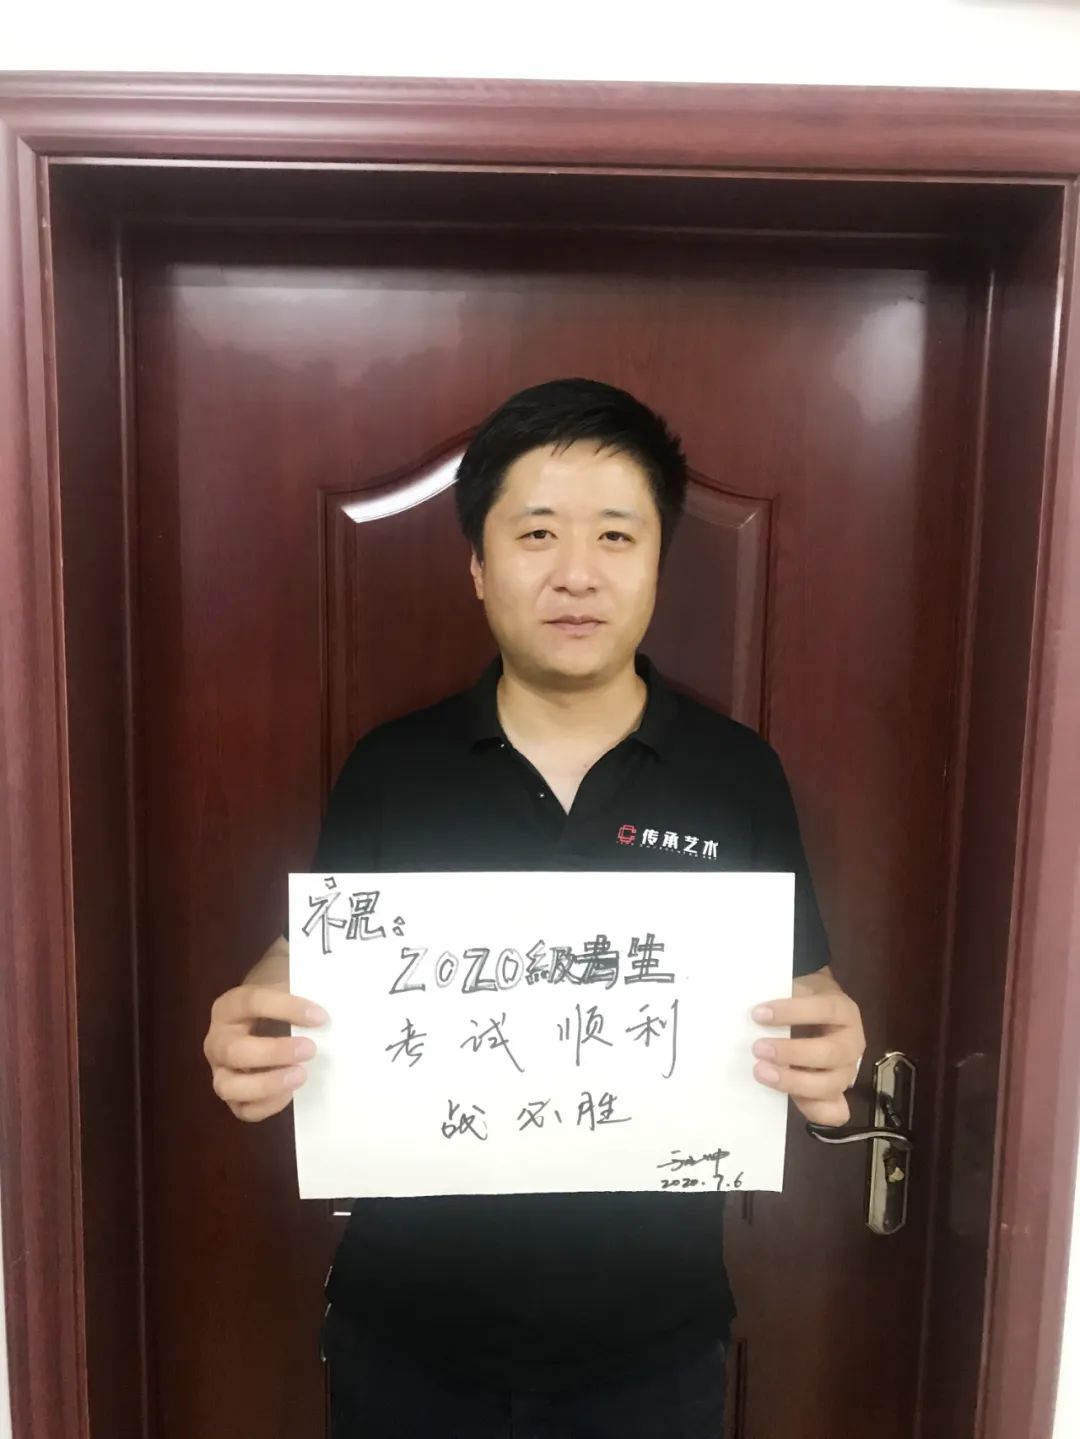 传承艺术
祝:
2020級考生
考试顺利
战必胜
2020.7.6